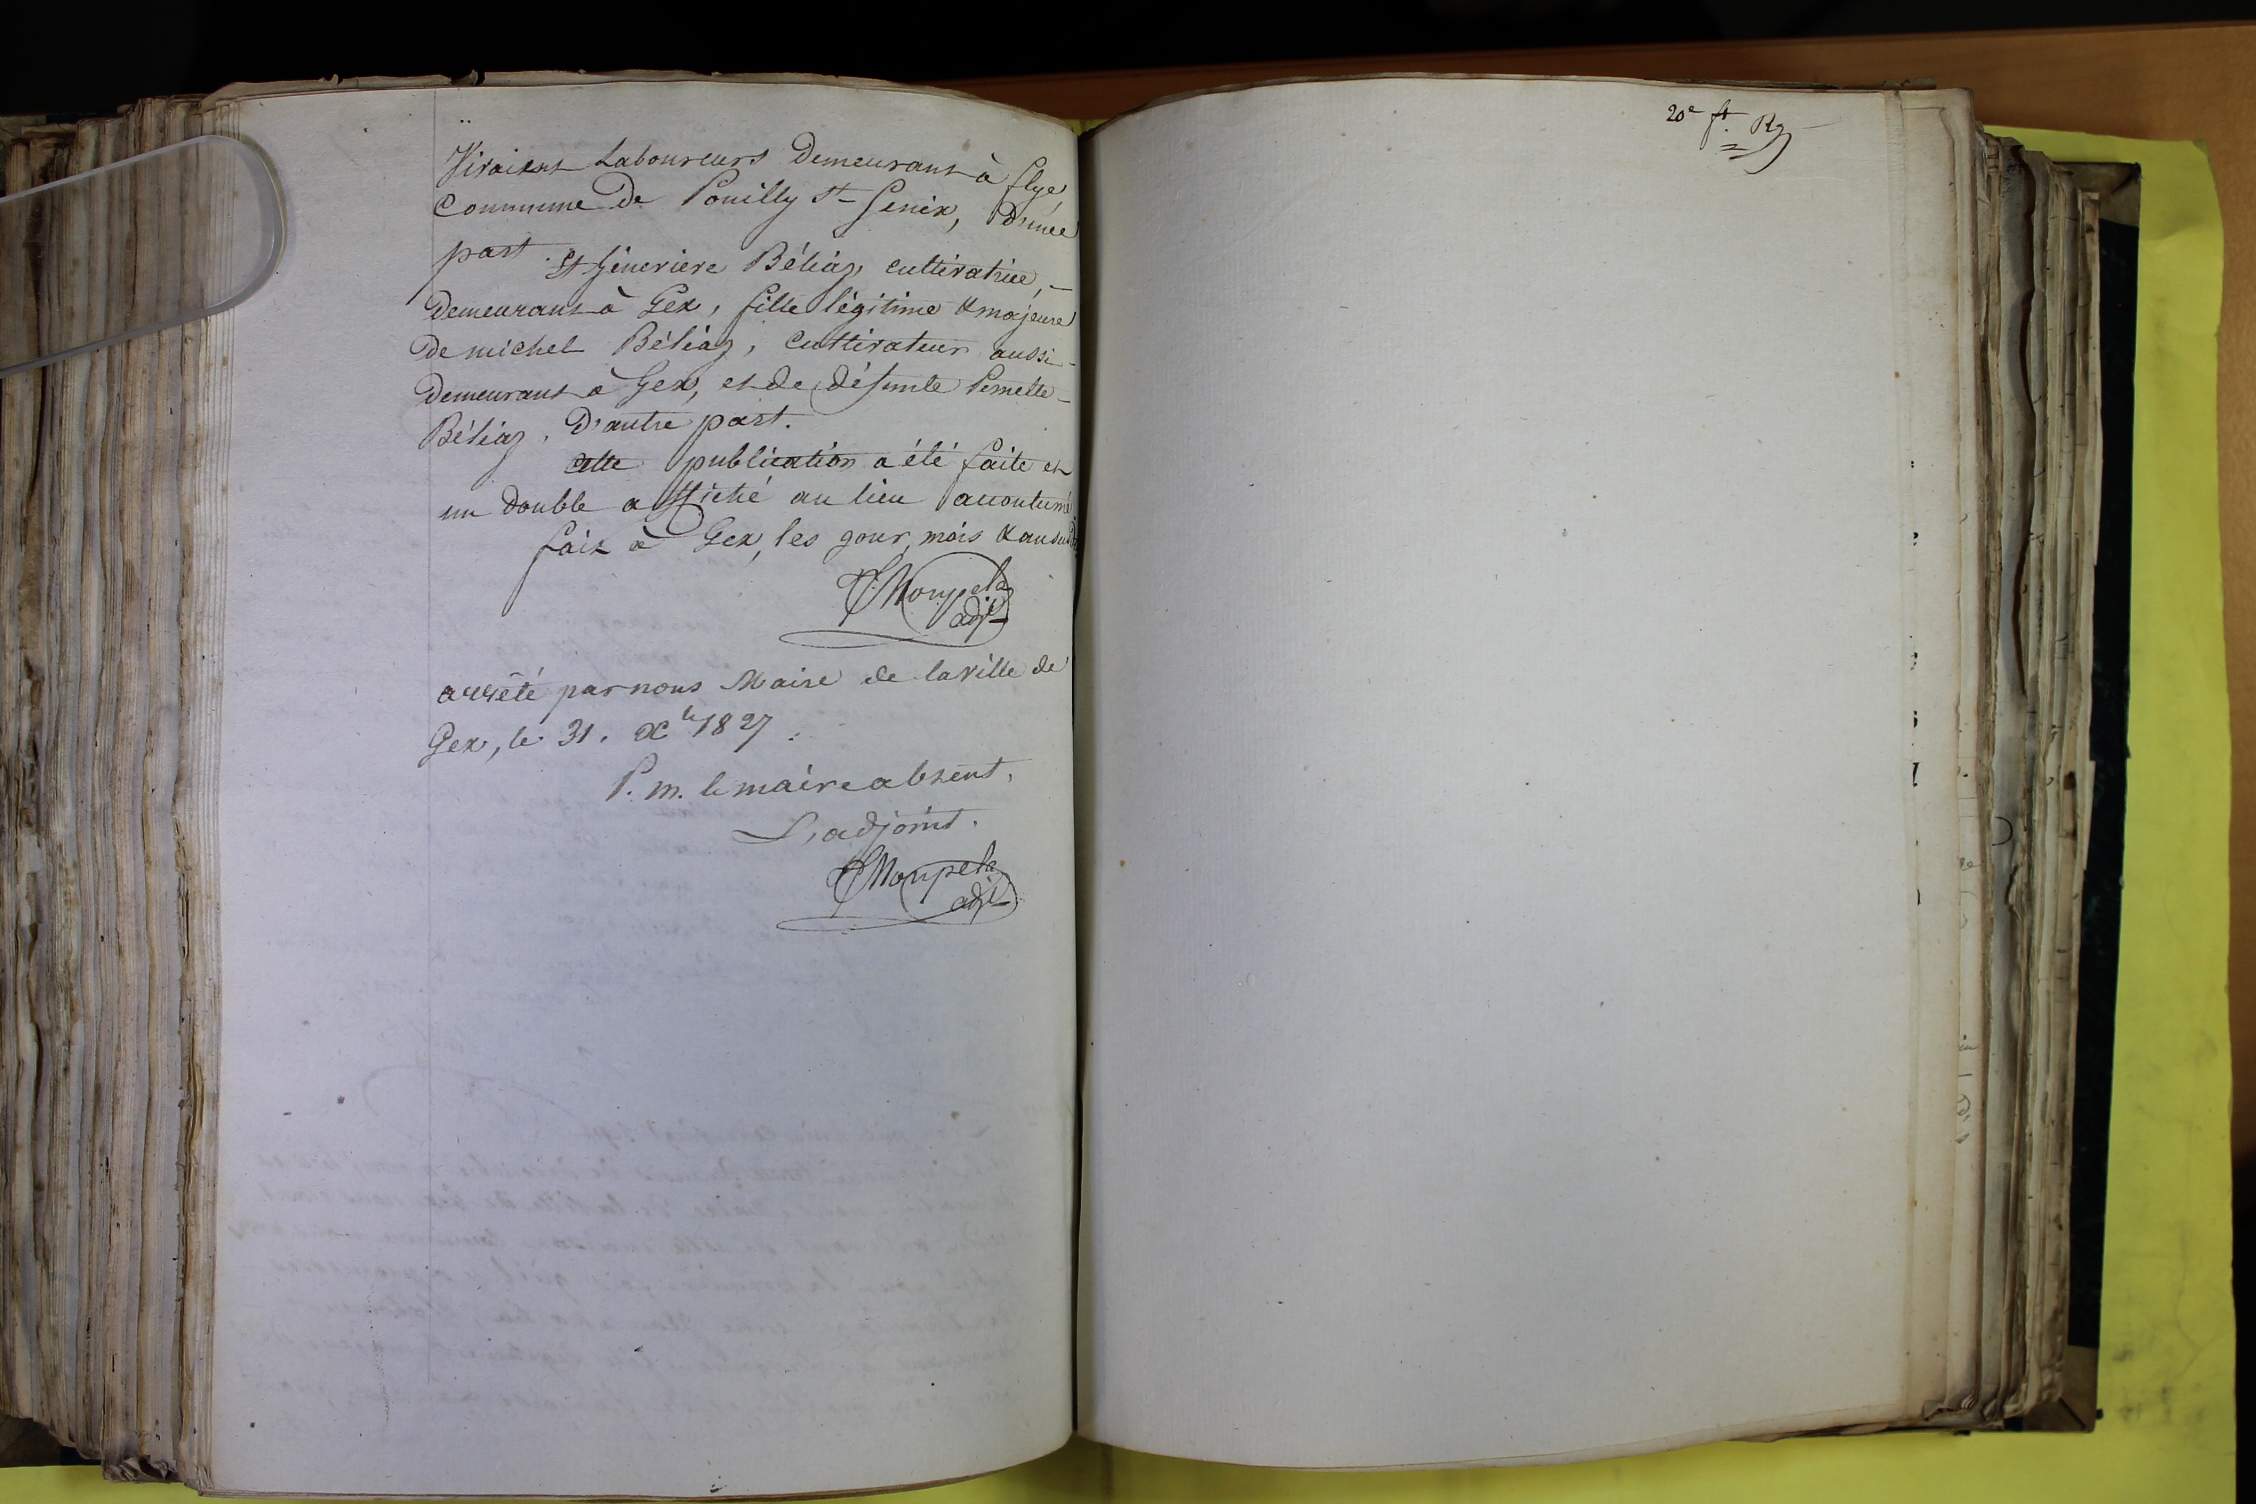 Viraient Laboureurs Demeurant à flyé,
Commune De Pouilly St- Genix, D'unee
part. Et Géneviere Béliaz, cultivatrice, -
Demeurant à Gex, fille légitime & majeure
De michel Béliaz, Cultivateur aussi -
Demeurant à Gex, et de défunte Pernette -
Béliaz, D'autre part.
cette publication a été faite et
un Double affiché au lieu accoutumé
fait à Gex, les jour, mois & an susd
adjt
arrêté par nous Maire de la ville de
Gex, le 31. Xbre 1827.
P. m. le maire absent,
L'adjoint.
adjt
20e ft. Rg